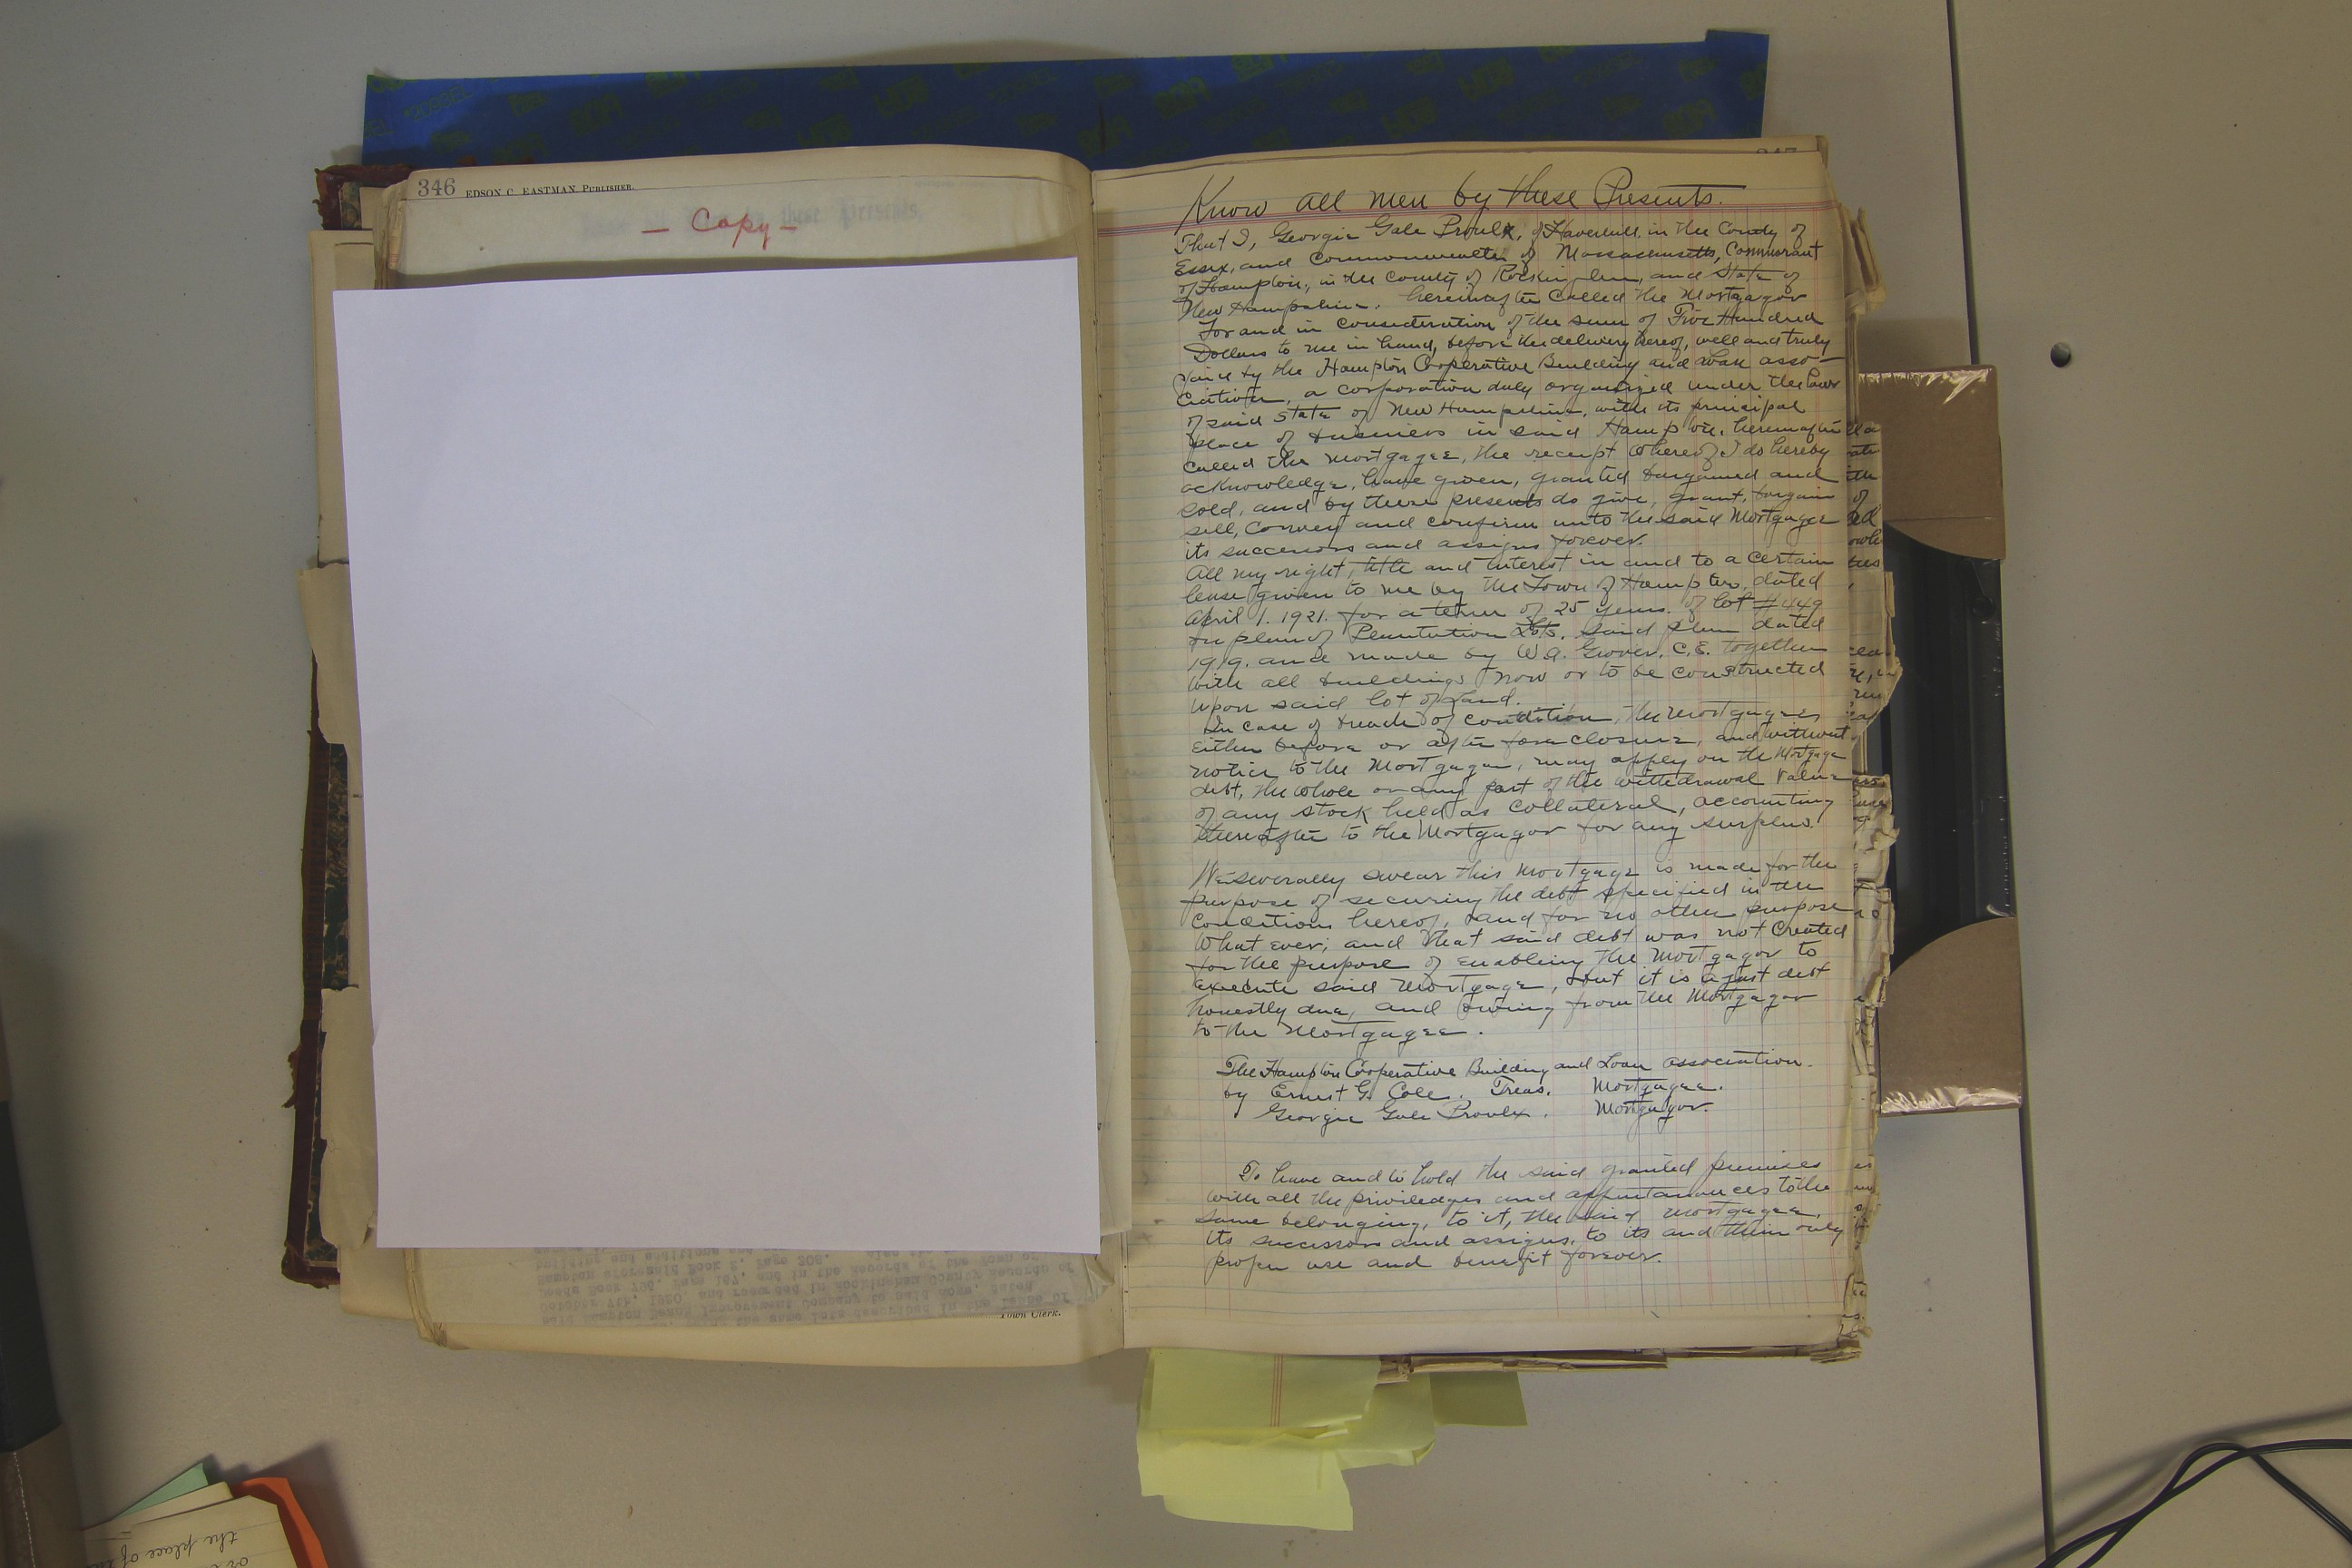 346 EDSON C. EASTMAN, PUBLISHER.
— Copy —
Know all men by these Presents.
That I, Georgie Gale Proulx, of Haverhill, in the County of
Essex, and Commonwealth of Massachusetts, Commorant
of Hampton, in the County of Rockingham, and State of
New Hampshire. hereinafter called the Mortgagor
For and in consideration of the sum of Five Hundred
Dollars to me in hand, before the delivery hereof, well and truly
paid by the Hampton Cooperative Building and Loan asso-
ciation, a corporation duly organized under the laws
of said State of New Hampshire, with its principal
place of business in said Hampton, hereinafter
called the mortgagee, the receipt whereof I do hereby
acknowledge, have given, granted bargained and
sold, and by these presents do give, grant, bargain
sell, convey and confirm unto the said Mortgagee
its successors and assigns forever.
All my right, title and interest in and to a certain
lease given to me by the Town of Hampton, dated
April 1. 1921. for a term of 25 years. of lot # 449
on plan of Plantation Lots, said plan dated
1919. and made by W.A. Grover. C.E. together
with all buildings now or to be constructed
upon said lot of land.
In case of breach of condition, the mortgagee,
either before or after foreclosure, and without
notice to the Mortgagor, may apply on the Mortgage
debt, the whole or any part of the withdrawal value
of any stock held as collateral, accounting
thereafter to the Mortgagor for any surplus.
We severally swear this mortgage is made for the
purpose of securing the debt specified in the
condition hereof, and for no other purpose
what ever; and that said debt was not created
for the purpose of enabling the mortgagor to
execute said mortgage, but it is a just debt
honestly due, and owing from the Mortgagor
to the Mortgagee.
The Hampton Cooperative Building and Loan association.
by Ernest G. Cole. Treas. Mortgagee.
Georgie Gale Proulx. Mortgagor.
To have and to hold the said granted premises
with all the priviledges and appurtanances to the
same belonging, to it, the said mortgagee,
its successors and assigns, to its and their only
proper use and benefit forever.
Town Clerk.
the place of